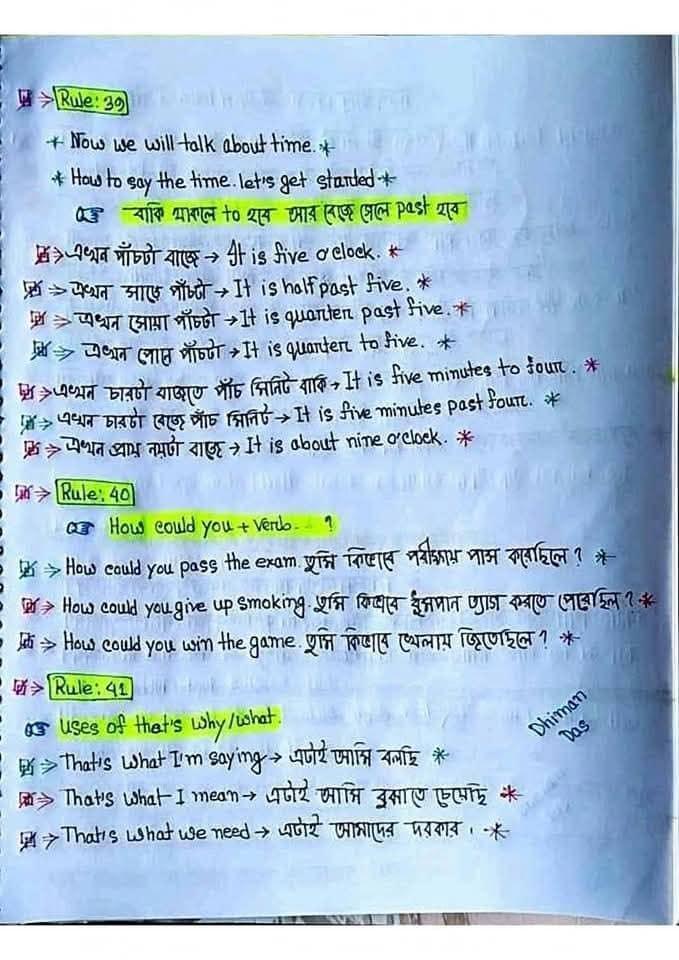 Rule: 39
* Now we will talk about time. *
* How to say the time. let's get started *
বাকি থাকলে to হবে আর বেজে গেলে past হবে
এখন পাঁচটা বাজে → It is five o'clock. *
এখন সাড়ে পাঁচটা → It is half past five. *
এখন সোয়া পাঁচটা → It is quarter past five. *
এখন পোনে পাঁচটা → It is quarter to five. *
এখন চারটা বাজতে পাঁচ মিনিট বাকি → It is five minutes to four. *
এখন চারটা বেজে পাঁচ মিনিট → It is five minutes past four. *
এখন প্রায় নয়টা বাজে → It is about nine o'clock. *
Rule: 40
How could you + Verb...?
How could you pass the exam. তুমি কিভাবে পরীক্ষায় পাস করেছিলে ? *
How could you give up smoking. তুমি কিভাবে ধুমপান ত্যাগ করতে পেরেছিলে ? *
How could you win the game. তুমি কিভাবে খেলায় জিতেছিলে ? *
Rule: 41
uses of that's why/what.
Dhiman
Das
That's what I'm saying → এটাই আমি বলছি *
That's what I mean → এটাই আমি বুঝাতে চেয়েছি *
That's what we need → এটাই আমাদের দরকার । *